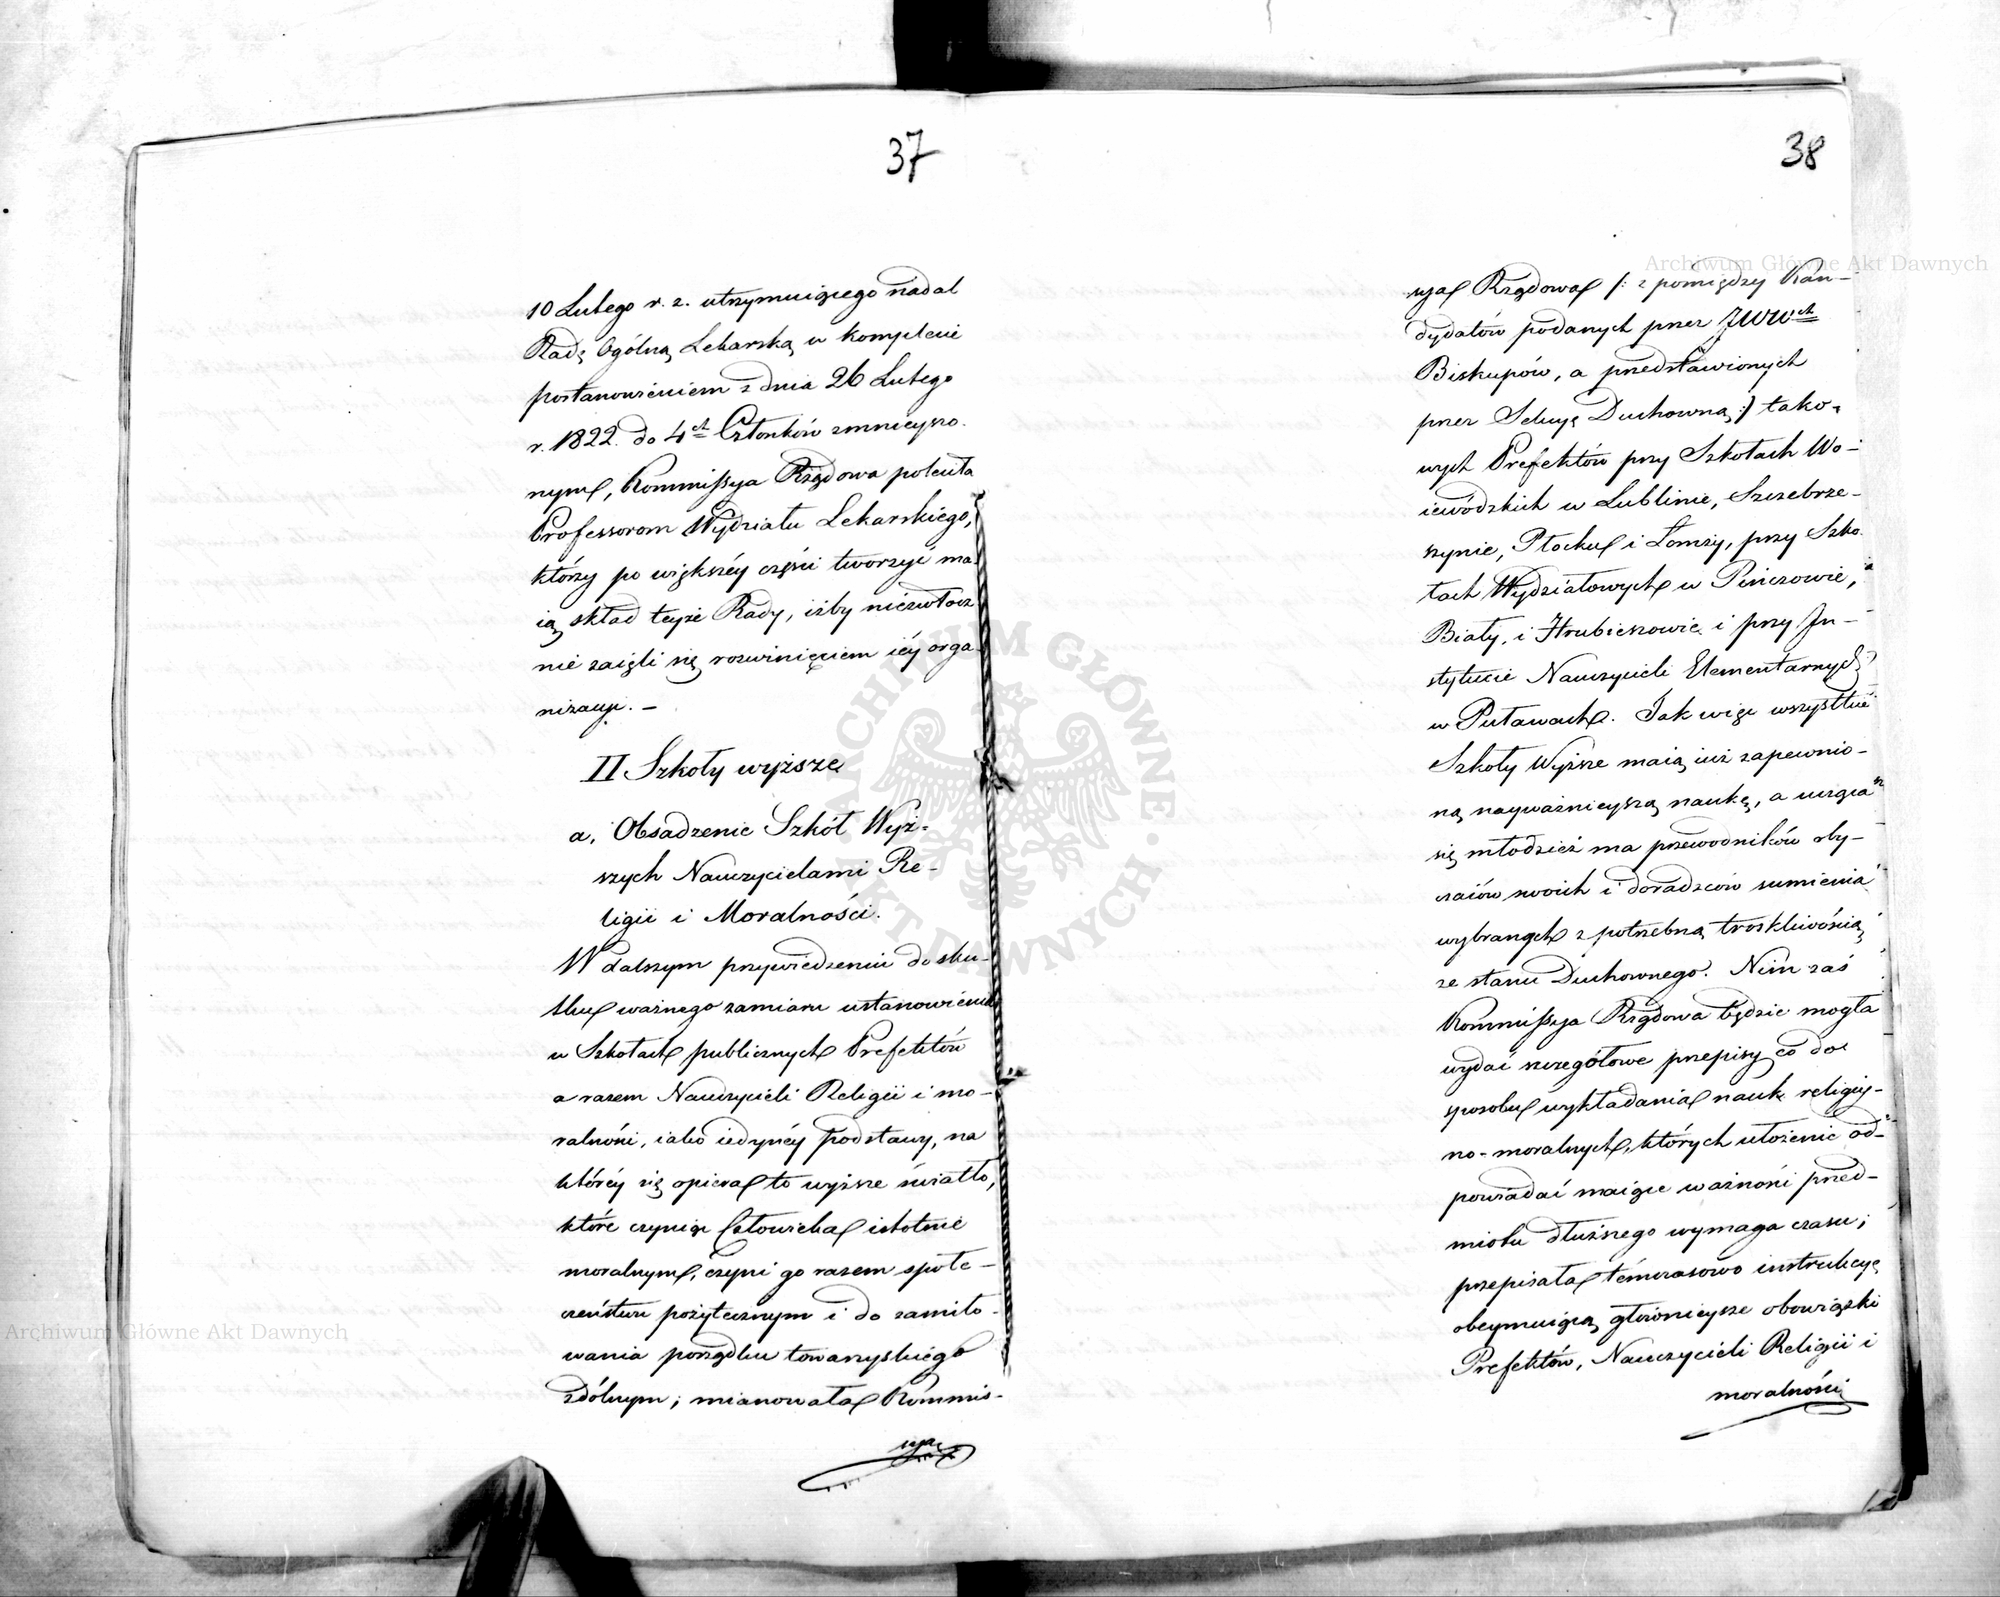 37
10 Lutego r. z. utrzymuiącego nadal
Radę Ogólną Lekarską w komplecie
postanowieniem z dnia 26 Lutego
r. 1822. do 4ch Członków zmnieyszo-
nym, Kommissya Rządowa poleciła
Professorom Wydziału Lekarskiego,
którzy po większéy części tworzyć ma-
ią skład teyże Rady, iżby niezwłocz
nie zaięli się rozwinięciem iéy orga-
nizacyi. –
II Szkoły wyższe
a, Obsadzenie Szkół Wyż-
szych Nauczycielami Re-
ligii i Moralności.
W dalszym przywiedzeniu do sku-
tku ważnego zamiaru ustanowienia
w Szkołach publicznych Prefektów
a razem Nauczycieli Religii i mo-
ralności, iako iedynéy podstawy, na
któréy się opiera to wyższe światło,
które czyniąc Człowieka istotnie
moralnym, czyni go razem społe-
czeństwu pożytecznym i do zamiło-
wania porządku towarzyskiego
zdólnym; mianowała Kommis-
sya
38
sya Rządowa /: z pomiędzy Kan-
dydatów podanych przez JWWch
Biskupów, a przedstawionych
przez Sekcyę Duchowną :/ tako-
wych Prefektów przy Szkołach Wo-
iewódzkich w Lublinie, Szczebrze-
szynie, Płocku i Łomży, przy Szko-
łach Wydziałowych w Pińczowie,
Biały, i Hrubieszowie i przy In-
stytucie Nauczycieli Elementarnych
w Puławach. Jak więc wszystkie
Szkoły Wyższe maią iuż zapewnio-
ną nayważnieyszą naukę, a ucząca
się młodzież ma przewodników oby-
czaiów swoich i doradzców sumienia
wybranych z potrzebną troskliwością
ze stanu Duchownego. Nim zaś
Kommissya Rządowa będzie mogła
wydać szczegółowe przepisy co do
sposobu wykładania nauk religiy-
no-moralnych, których ułożenie od-
powiadać maiące ważności przed-
miotu dłuższego wymaga czasu;
przepisała témczasowo instrukcyę
obeymuiącą głównieysze obowiązki
Prefektów, Nauczycieli Religii i
moralności
Archiwum Główne Akt Dawnych
Archiwum Główne Akt Dawnych
ARCHIWUM GŁÓWNE · AKT DAWNYCH ·